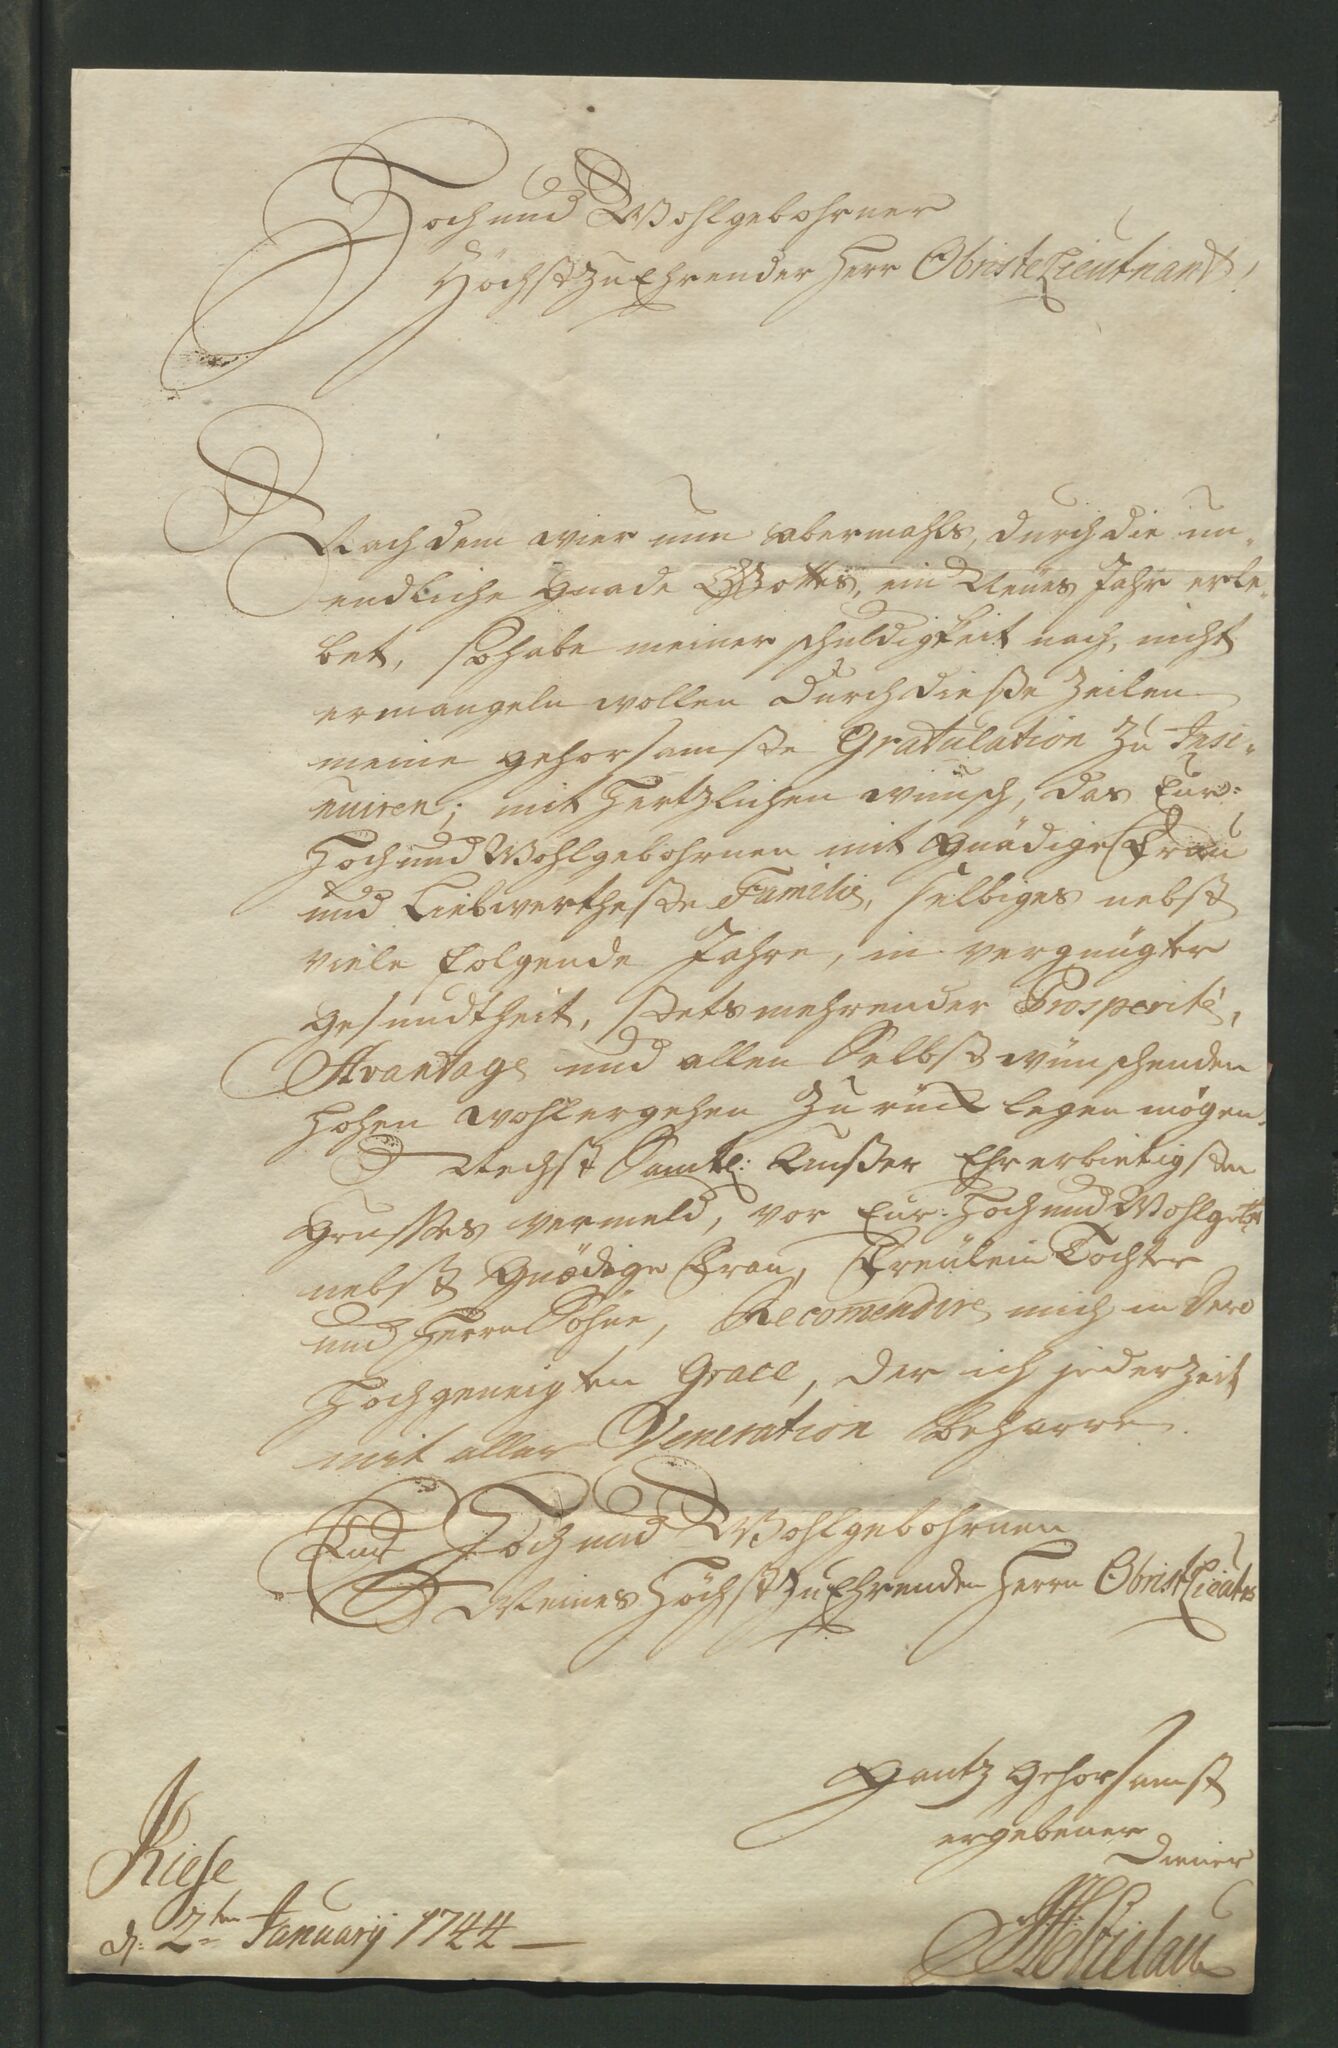 Hoch und Wohlgebohrner
Höchst zu Ehrender Herr Obriste Lieutnandt!
Nach dem wier nun abermahls, durch die un-
endliche Gnade Gottes, ein Neües Jahr erle-
bet, so habe meiner schuldigkeit nach, nicht
ermangeln wollen durch dieße Zeilen
meine gehorsamste Gratulation zu Insi-
nuiren; mit Hertzlichen wunsch, das Eur:
Hoch und Wohlgebohrnen mit Gnädige Frau
und Liebwertheste Familie, selbiges nebst
viele folgende Jahre, in vergnügter
gesundtheit, stets mehrender Prosperité,
Avantage und allen Selbst wünschenden
hohen wohlergehen zu rück legen mögen.
Nechst Samtl: Unßer Ehrerbietigsten
Grusses vermeld, vor Eur: Hoch und Wohlgeb:
nebst Gnädige Frau, Freülein Tochter
und Herrn Söhne, Recomendire mich in Dero
Hochgeneigten Grace, der ich jederzeit
mit aller Veneration beharre
Eur Hoch und Wohlgebohrnen
Meines Höchst zu Ehrenden Herrn Obrist Lieutns
Gantz gehorsamst
ergebener
Diener
Kiese
d: 2ten January 1744